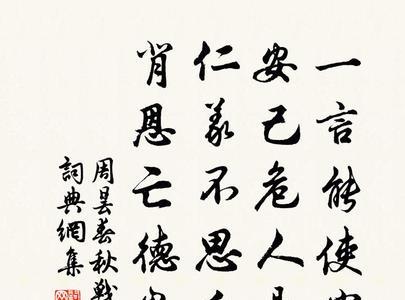 一言能使
安己危人
仁義不思
肖恩亡德
周昙春秋戰
詞典網集